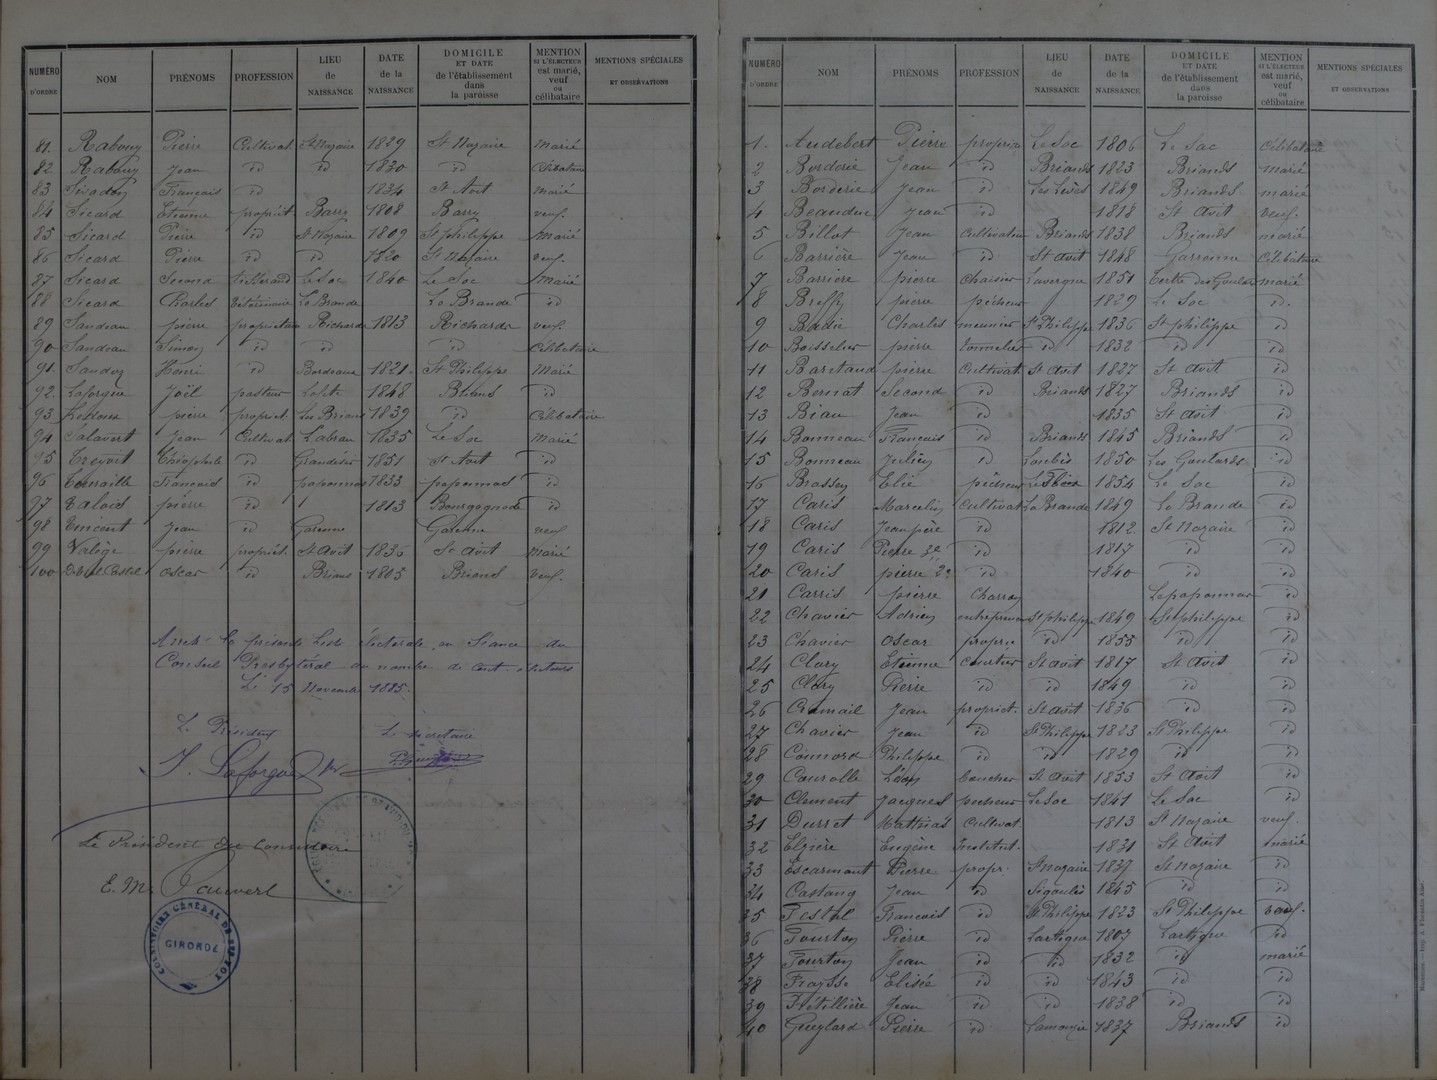 NUMÉRO D'ORDRE NOM PRÉNOMS PROFESSION LIEU de NAISSANCE DATE de la NAISSANCE DOMICILE ET DATE de l'établissement dans la paroisse MENTION SI L'ÉLECTEUR est marié, veuf ou célibataire MENTIONS SPÉCIALES ET OBSERVATIONS
81. Rabouy Pierre Cultivat. St Nazaire 1829 St Nazaire Marié
82 Rabouy Jean id id 1830 id Célibataire
83 François id 1834 St Avit marié
84 Sicard Etienne propriét Barry 1808 Barry veuf.
85 Sicard Pierre id St Nazaire 1809 St philippe Marié
86 Sicard Pierre id id 1820 St Nazaire veuf.
87 Sicard Second tisserand Le Soc 1840 Le Soc Marié
88 Sicard Charles Vétérinaire La Brande La Brande id
89 Sandeau pierre propriétair Richarde 1813 Richarde veuf.
90 Sandeau Simon id id id Célibataire
91. Henri id Bordeaux 1821. St Philippe Marié
92. Laforgue Joël pasteur 1848 id
93. pierre propriet 1839 id Célibataire
94 Jean Cultivat. 1835 Le Soc Marié
95 Théophile id 1851 St Avit id
96 François id paponnat 1833 paponnat id
97 pierre id 1813 id
98 Jean id Garenne Garenne veuf
99 Valège pierre propriét. St Avit 1836 St Avit Marié
100 oscar id 1805 Briand veuf.
Arrêté la présente liste électorale en Séance du
Conseil Presbytéral au nombre de cent électeurs
Le 15 Novembre 1885.
Le Président Le secrétaire
J. Laforgue
Le Président du Consistoire
E. M.
CONSISTOIRE GÉNÉRAL DE STE FOY
GIRONDE
NUMÉRO D'ORDRE NOM PRÉNOMS PROFESSION LIEU de NAISSANCE DATE de la NAISSANCE DOMICILE ET DATE de l'établissement dans la paroisse MENTION SI L'ÉLECTEUR est marié, veuf ou célibataire MENTIONS SPÉCIALES ET OBSERVATIONS
1. Audebert Pierre Le Soc 1806 Le Soc Célibataire
2 Borderie Jean id Briands 1823 Briands marié
3 Borderie Jean id 1849 Briands marié
4 Jean id 1818 St Avit veuf.
5 Billot Jean Cultivateur Briands 1838 Briands marié
6 Barrière Jean id St Avit 1848 Garenne Célibataire
7 Barrière pierre Chaisier Lavergne 1851 marié
8 pierre pêcheur 1829 Le Soc id.
9 Badie Charles meunier St Philippe 1836 St philippe id
10 Boisselier pierre tonnelier id 1832 id id
11 pierre Cultivat St Avit 1827 St Avit id
12 Bernat Second id Briands 1827 Briands id
13 Biau Jean id 1835 St Avit id
14 Bonneau François id Briands 1845 Briands id
15 Bonneau Julien id 1850 Les Goulards id
16 Elie pêcheur 1854 Le Soc id
17 Caris Marcelin Cultivat La Brande 1849 La Brande id
18 Caris Jean père id 1812. St Nazaire id
19 Caris Pierre id 1817 id id
20 Caris pierre 2e id 1840 id id
21 Carris pierre Charron Le paponnat id
22 Chavier Adrien entrepreneur St philippe 1849 St philippe id
23 Chavier oscar proprié id 1855 id id
24 Clary Etienne Courtier St Avit 1817 St Avit id
25 Clary Pierre id id 1849 id id
26 Jean propriet. St Avit 1836 id id
27 Chavier Jean id St Philippe 1823 St Philippe id
28 Philippe id id 1829 id id
29 Léon boucher St Avit 1853 St Avit id
30 Clément Jacques pecheur Le Soc 1841 Le Soc id
31 Mathias Cultivat. 1813 St Nazaire veuf.
32 Elzière Eugène Institut. 1831 St Avit marié
33 Escarmant Pierre propr. St Nazaire 1837 St Nazaire id
34 Castang Jean id Sigoulès 1845 id id
35 Testal François id St Philippe 1823 St Philippe veuf.
36 Tourton Pierre id Lartigue 1807 Lartigue id
37 Tourton Jean id id 1832 id marié
38 Fraysse Elisée id id 1843 id id
39 Frétillière Jean id id 1838 id id
40 Gueylard Pierre id Lamonzie 1837 Briands id